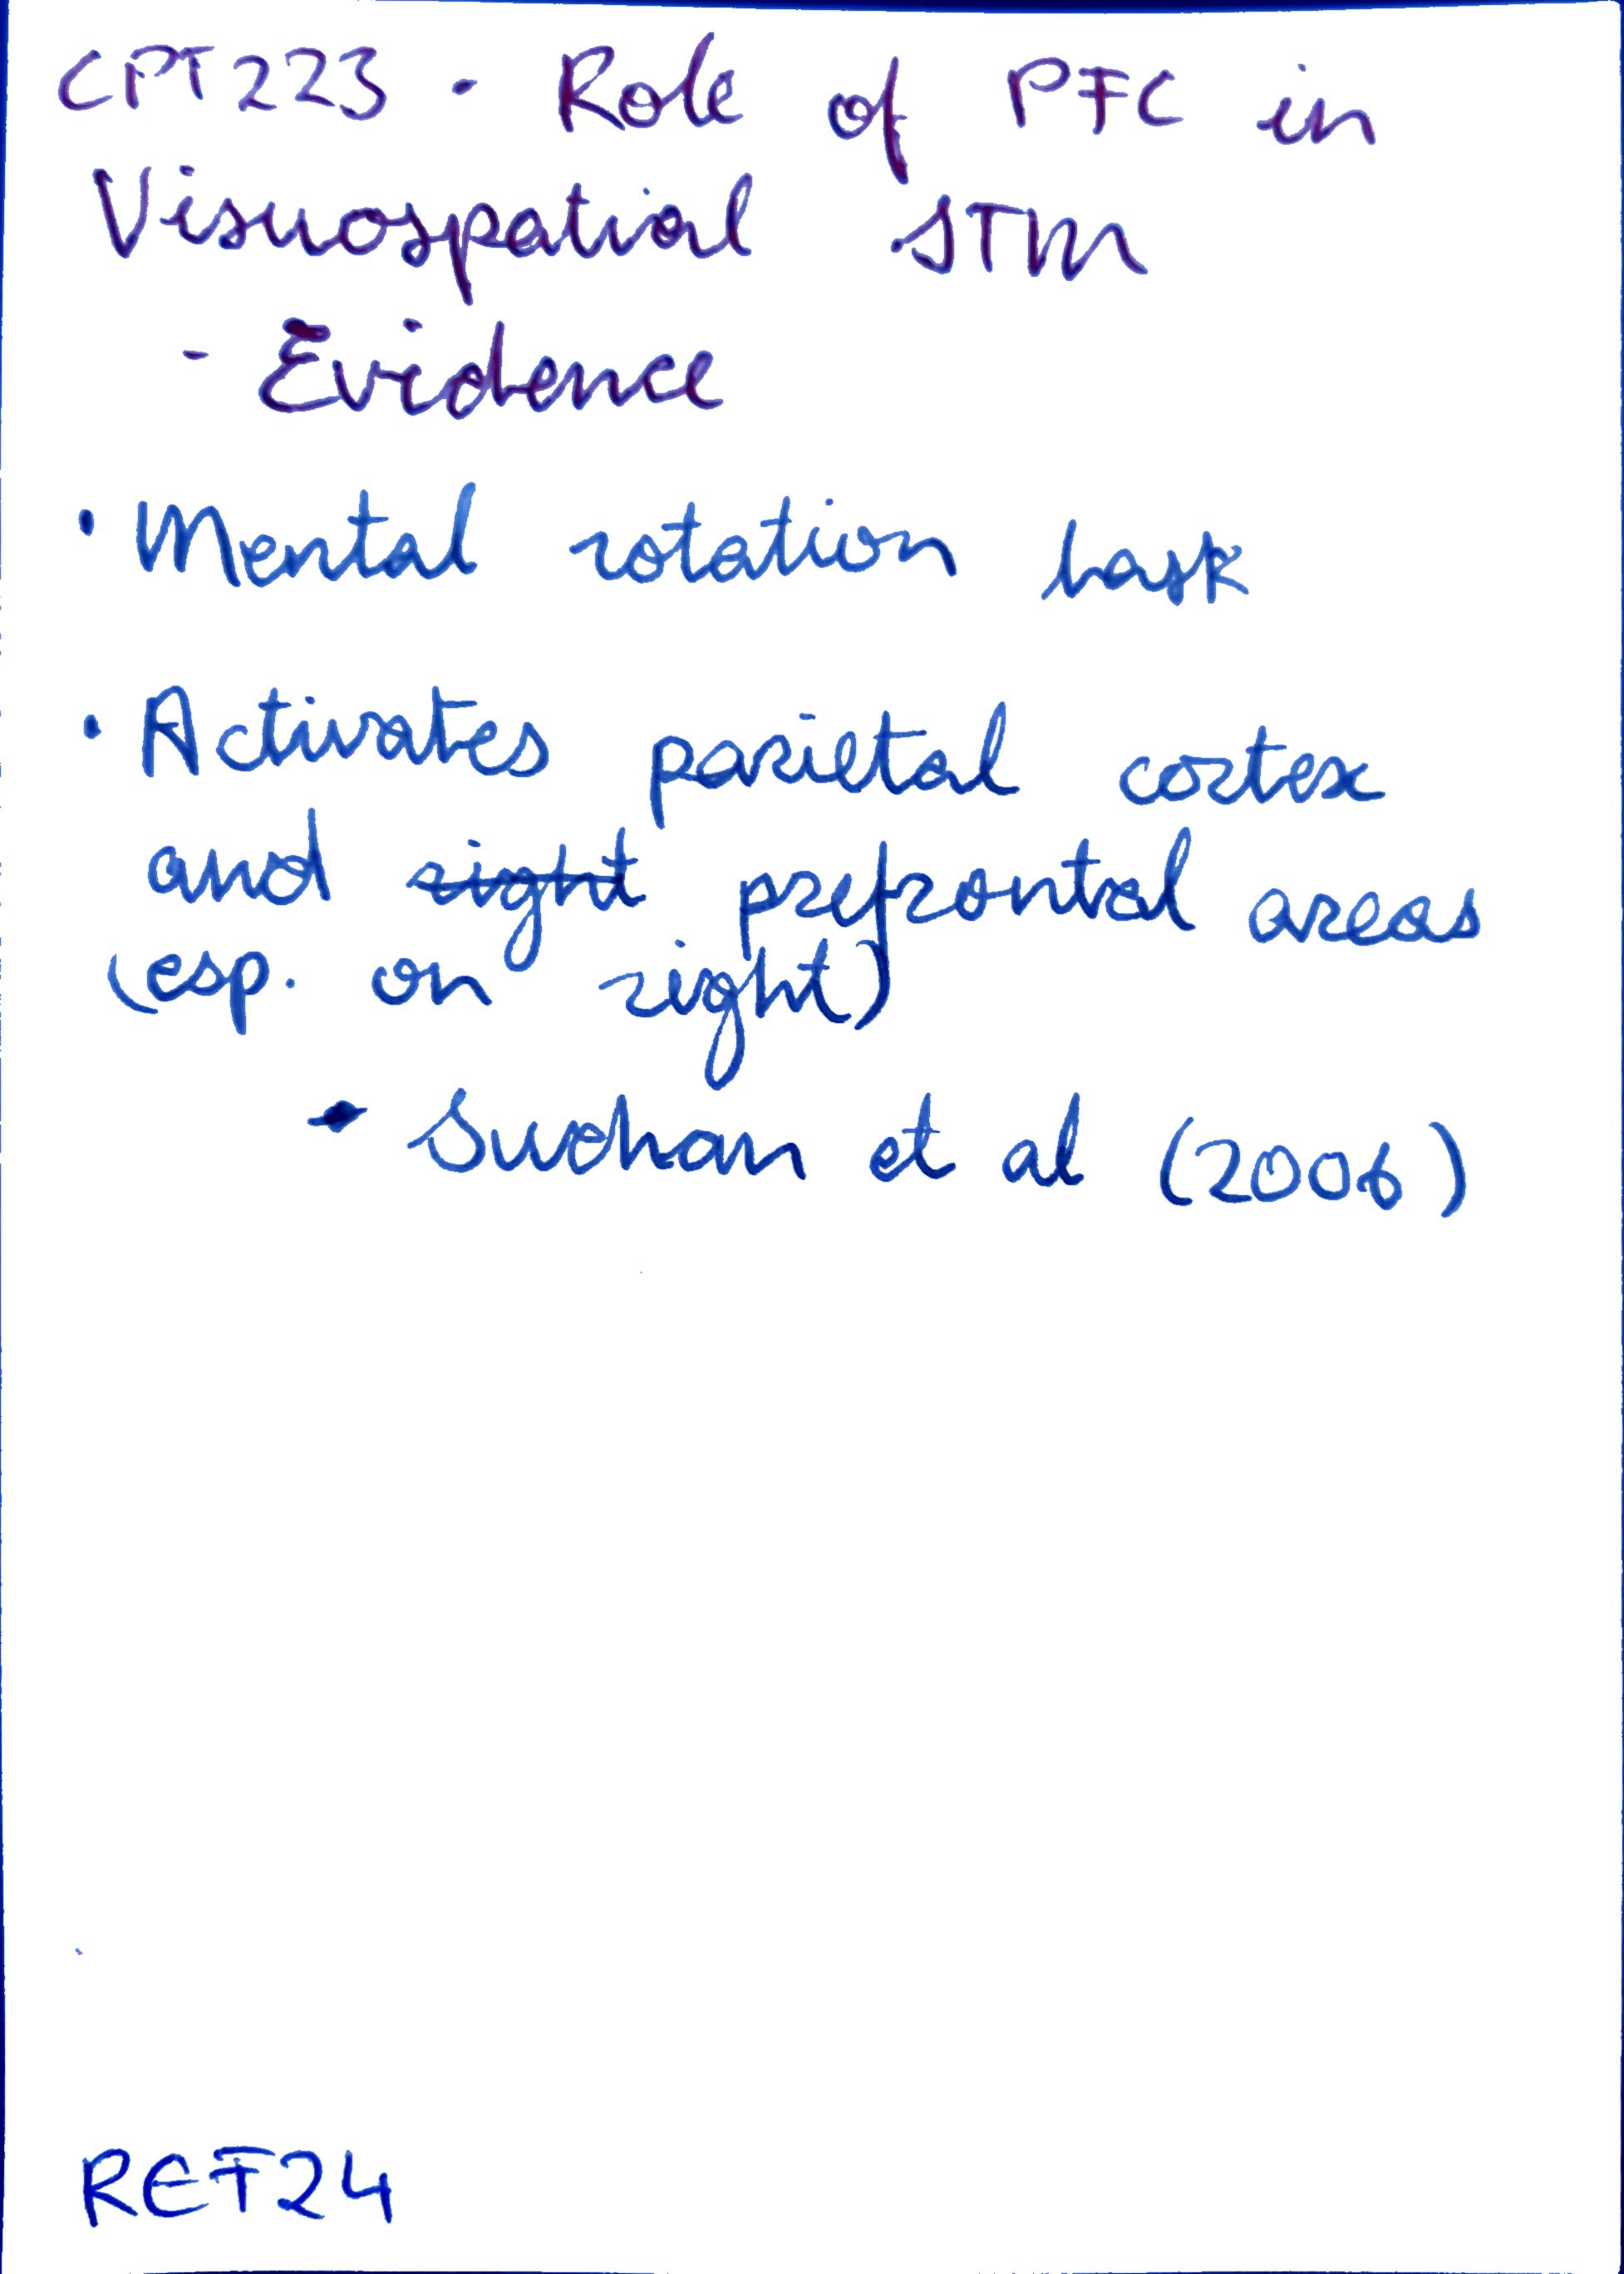 CPT223 · Role of PFC in
Visuospatial STM
- Evidence
• Mental rotation task
• Activates parietal cortex
and right prefrontal areas
(esp. on right)
- Suchan et al (2006)
REF24